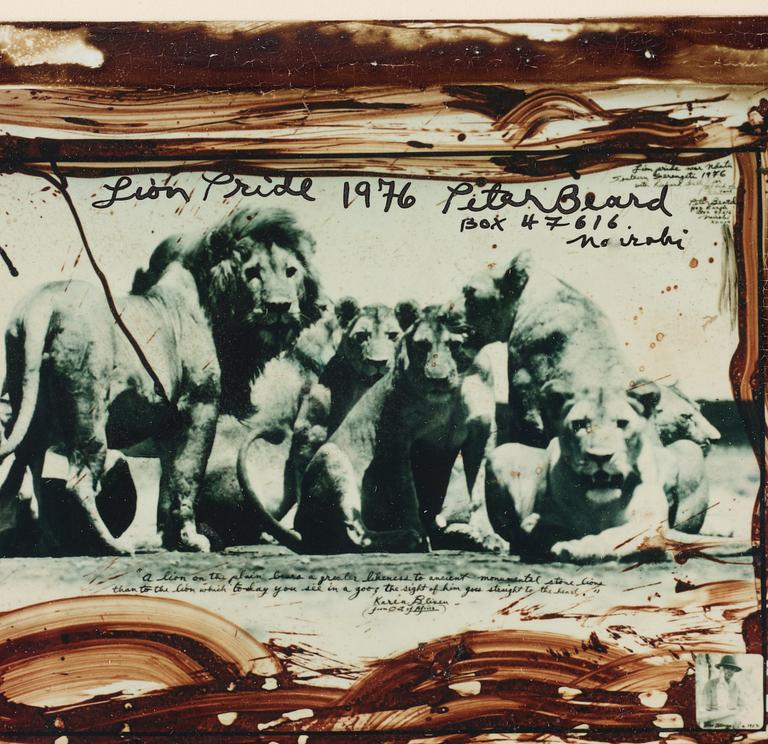 Lion Pride 1976 Peter Beard
Box 47616
Nairobi
Lion pride near Ndutu
Southern Serengeti 1976
Peter Beard
"A lion on the plain bears a greater likeness to ancient monumental stone lions
than to the lion which to-day you see in a zoo; the sight of him goes straight to the heart."
Karen Blixen
from Out of Africa